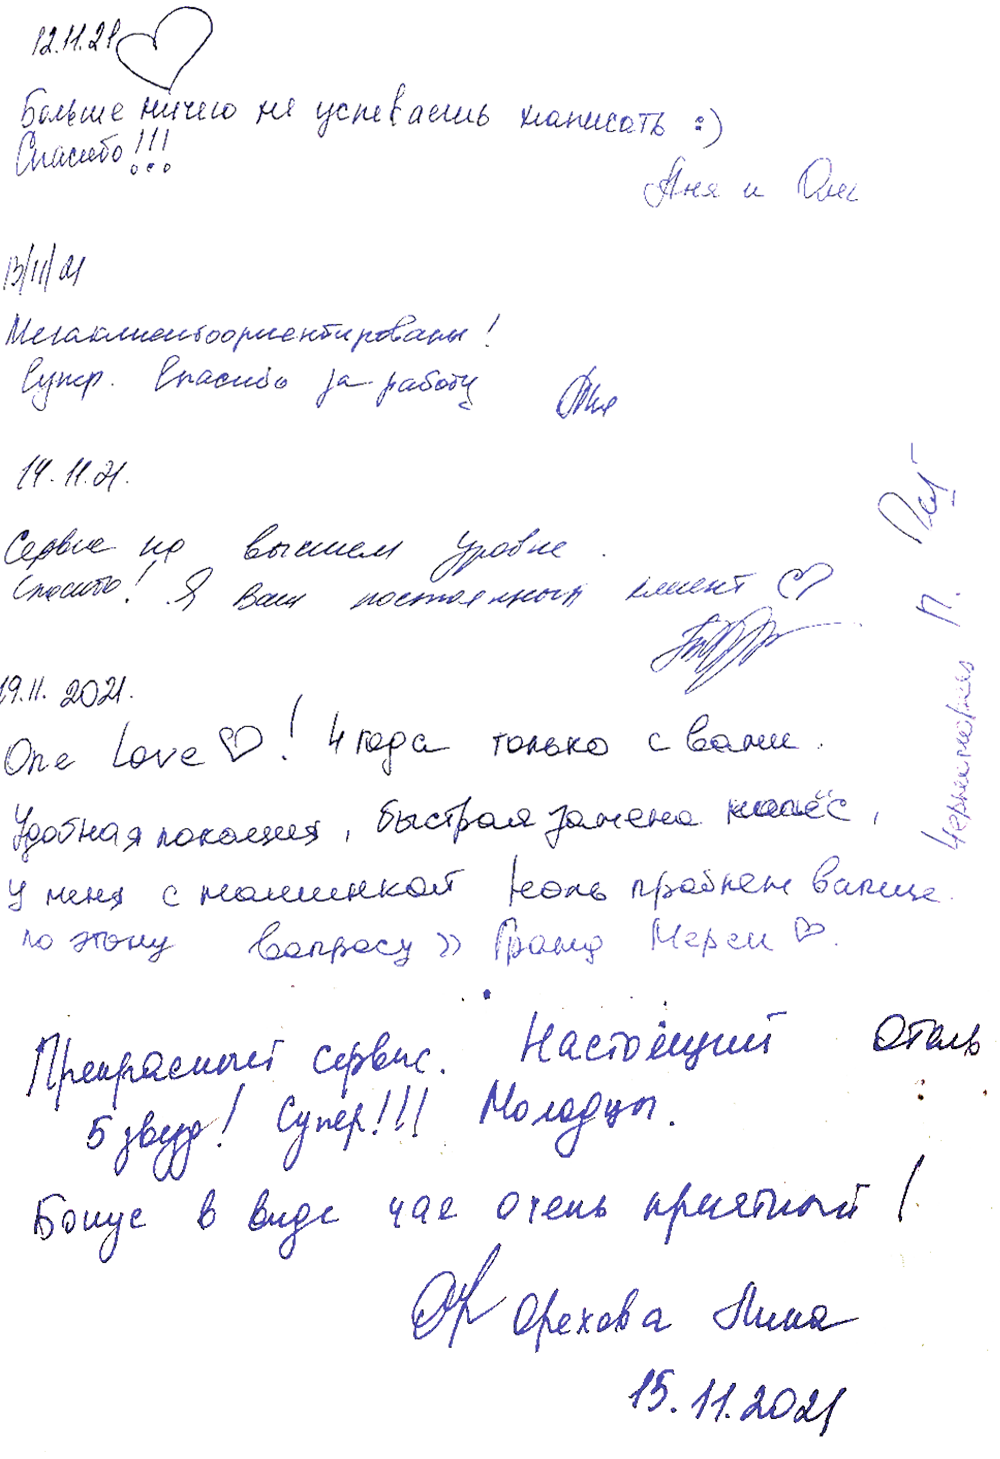 12.11.21
Больше ничего не успеваешь написать :)
Спасибо!!!
Аня и Олег
13/11/21
Мегаклиентоориентированы!
Супер. Спасибо за работу
Аня
14.11.21.
Сервис на высшем уровне.
Спасибо! Я Ваш постоянный клиент
19.11.2021.
One Love ! 4 года только с вами.
Удобная локация, быстрая замена колёс,
У меня с машинкой ноль проблем вапще
по этому вопросу)) Гранд Мерси
П.
Прекрасный сервис. Настоящий Отель
5 звезд! Супер!!! Молодцы.
Бонус в виде чая очень приятный!
Орехова Нина
15.11.2021